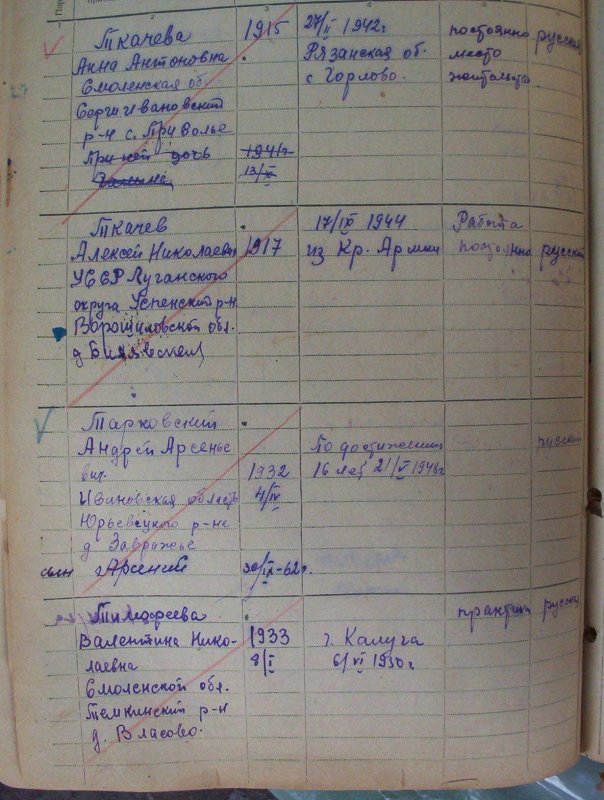 2 3 4 5 6
Ткачева 1915 27/II 1942г постоянно русская
Анна Антоновна Рязанская об. место
Смоленская об. с Горлово. жительства
р-н с. Приволье
При ней дочь 1941г
13/XI
Ткачев 17/IX 1944 Работа
Алексей Николаевич 1917 из Кр. Армии постоянно русский
УССР Луганского
округа Успенский р-н
Ворошиловской обл.
д
Тарковский
Андрей Арсенье По достижении русский
вич. 1932 16 лет 21/V 1948г
Ивановская область 4/IV
Юрьевецкого р-на
д Завражье
сын Арсений 30/IX-62г.
Тимофеева практика русская
Валентина Нико- 1933 г. Калуга
лаевна 8/I 6/VI 1950г
Смоленской обл.
Темкинский р-н
д. Власово.